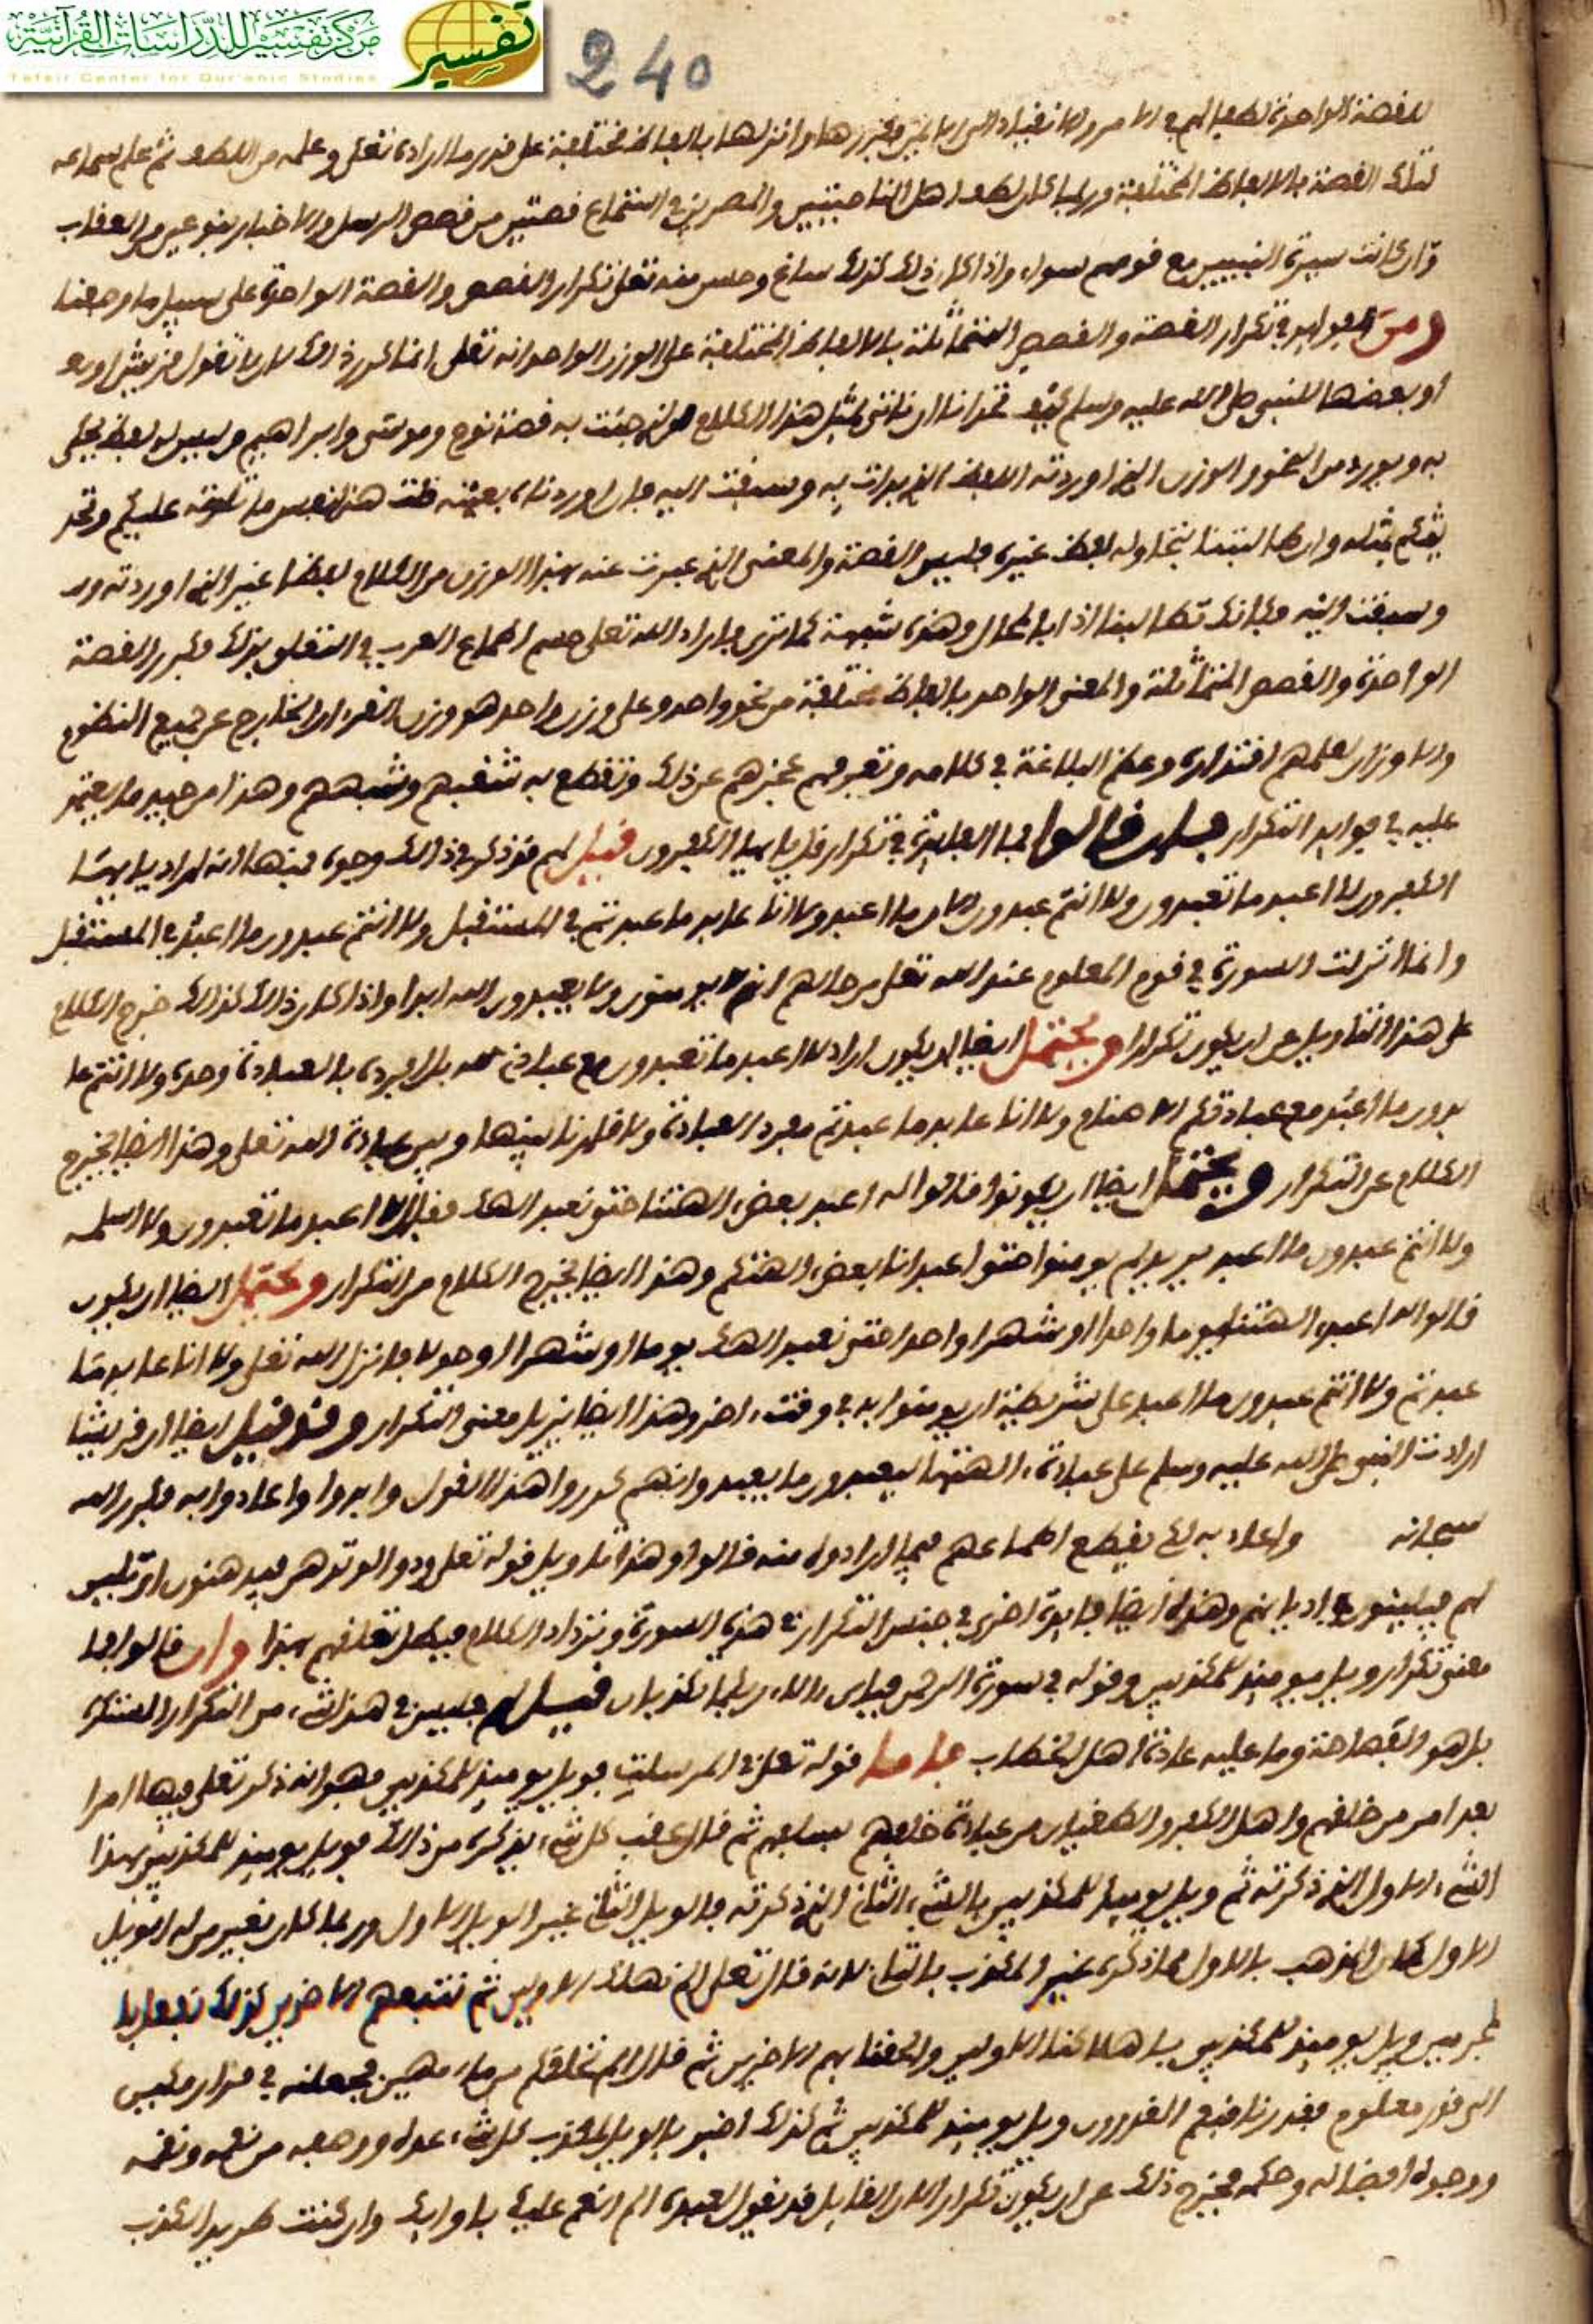 مركز تفسير للدراسات القرآنية
Tafsir Center for Qur'anic Studies
تفسير
240
للقصة الواحدة بالفاظ مختلفة على قدر ما اراده تعلى وعلمه من اللطف ثم على سماعه
تلك القصة بالالفاظ المختلفة وربما كان لطف اهل الناحيتين والمصرين في استماع قصتين من قصص الرسل والاخبار بنوعين من العقاب
وان كانت سيرة النبيين مع قومهم سواء واذا كان ذلك كذلك ساغ وحسن منه تعلى تكرار القصص والقصة الواحدة على سبيل ما وصفنا
ومن الفوايد في تكرار القصة والقصص المتماثلة بالالفاظ المختلفة على الوزن الواحد انه تعلى انما كرر ذلك لان لا تقول قريش
او بعضها للنبي صلى الله عليه وسلم كيف تتحدانا ان ناتي بمثل هذا الكلام الذي جئت به قصة نوح وموسى وابراهيم وليس له لفظ يحكى
به ويورد من النحو والوزن الذي اوردته اللفظ الذي بدات به وسبقت اليه فان اوردناه بعينه قلت هذا نفس ما تلوته عليكم وتحد
يتكم بمثله وان طالبتنا بتناوله لفظ غيره فليس للقصة والمعنى الذي عبرت عنه بهذا الوزن من الكلام لفظا غير الذي اوردته
وسبقت اليه فكانك تطالبنا اذا بالمحال وهذه شبهة كما ترى فاراد الله تعلى حسم اطماع العرب في التعلق بذلك فكرر القصة
الواحدة والقصص المتماثلة والمعنى الواحد بالفاظ مختلفة من نحو واحد وعلى وزن واحد هو وزن القرءان الخارج عن جميع النظوم
والاوزان ليعلمهم اقتداره وعظم البلاغة في كلامه وتعريفهم عجزهم عن ذلك وتقطع به شغبهم وشبههم وهذا من جيد ما يعتمد
عليه في فوايد التكرار فان قالوا فما الفايدة في تكرار قل يا يها الكفرون قيل لهم قد ذكر في ذلك وجوه منها انه اراد يا يها
الكفرون لا اعبد ما تعبدون ولا انتم عبدون الان ما اعبد ولا انا عابد ما عبدتم في المستقبل ولا انتم عبدون ما اعبد في المستقبل
وانما انزلت السورة في قوم المعلوم عند الله تعلى من حالهم انهم لا يومنون ولا يعبدون الله ابدا واذا كان ذلك كذلك خرج الكلام
على هذا التاويل عن ان يكون تكرارا ويحتمل ايضا ان يكون اراد لا اعبد ما تعبدون مع عبادة الله بل افرده بالعبادة وحده ولا انتم عا
بدون ما اعبد مع عبادتكم الاصنام ولا انا عابد ما عبدتم مفرد العبادة ولا قارنا بينها وبين عبادة الله تعلى وهذا ايضا يخرج
الكلام عن التكرار ويحتمل ايضا ان يكونوا قالوا له اعبد بعض الهتنا حتى نعبد الهك فقال لا اعبد ما تعبدون
ولا انتم عبدون ما اعبد يريد لم يومنوا حتى اعبد انا بعض الهتكم وهذا ايضا يخرج الكلام من التكرار ويحتمل ايضا ان يكون
قالوا له اعبد الهتنا يوما واحدا او شهرا واحدا حتى نعبد الهك يوما او شهرا او حولا فانزل الله تعلى ولا انا عابد ما
عبدتم ولا انتم عبدون ما اعبد على شريطة ان يومنوا به في وقت اخر وهذا ايضا يزيل معنى التكرار وقد قيل ايضا ان قريشا
ارادت النبي صلى الله عليه وسلم على عبادة الهتها ليعبدوا ما يعبد وانهم كرروا هذا القول وابدوا واعادوا به فكرر الله
سبحانه واعاد به لكي يقطع اطماعهم فيما ارادوه منه قالوا وهذا تاويل قوله تعلى ودوا لو تدهن فيدهنون اي تلين
لهم فيلينون في اديانهم وهذه ايضا فايدة اخرى في جنس التكرار في هذه السورة وترداد الكلام فبطل تعلقهم بهذا وان قالوا فما
معنى تكرار ويل يوميذ للمكذبين وقوله في سورة الرحمن فباي ءالاء ربكما تكذبان قيل لهم فليس في هذا شيء من التكرار المستكره
بل هو الفصاحة وما عليه عادة اهل الخطاب فاما قوله تعلى في المرسلات فويل يوميذ للمكذبين فهو انه ذكر تعلى فيها امرا
بعد امر من خلقهم واهل الكفر والطغيان من عبادة خالقهم ثم قال عقب كل شيء يذكره من ذلك فويل يوميذ للمكذبين بهذا
الشيء الاول الذي ذكرته ثم ويل يوميذ للمكذبين بالشيء الثاني الذي ذكرته فالويل الثاني غير الويل الاول وربما كان لغير من له الويل
الاول لان المكذب بالاول مما ذكره غير المكذب بالثاني لانه قال تعلى الم نهلك الاولين ثم نتبعهم الاخرين كذلك نفعل با
لمجرمين ويل يوميذ للمكذبين باهلاكنا الاولين والحاقنا بهم الاخرين ثم قال الم نخلقكم من ماء مهين فجعلنه في قرار مكين
الى قدر معلوم فقدرنا فنعم القدرون ويل يوميذ للمكذبين ثم كذلك اخبر بالويل لمكذب كل شيء عدله ووصفه من نعمه ونقمه
ووجوه افضاله وحكمه فخرج ذلك عن ان يكون تكرارا لان القايل قد يقول لعبده الم انعم عليك باوايك وان كنت طريدا لكذب